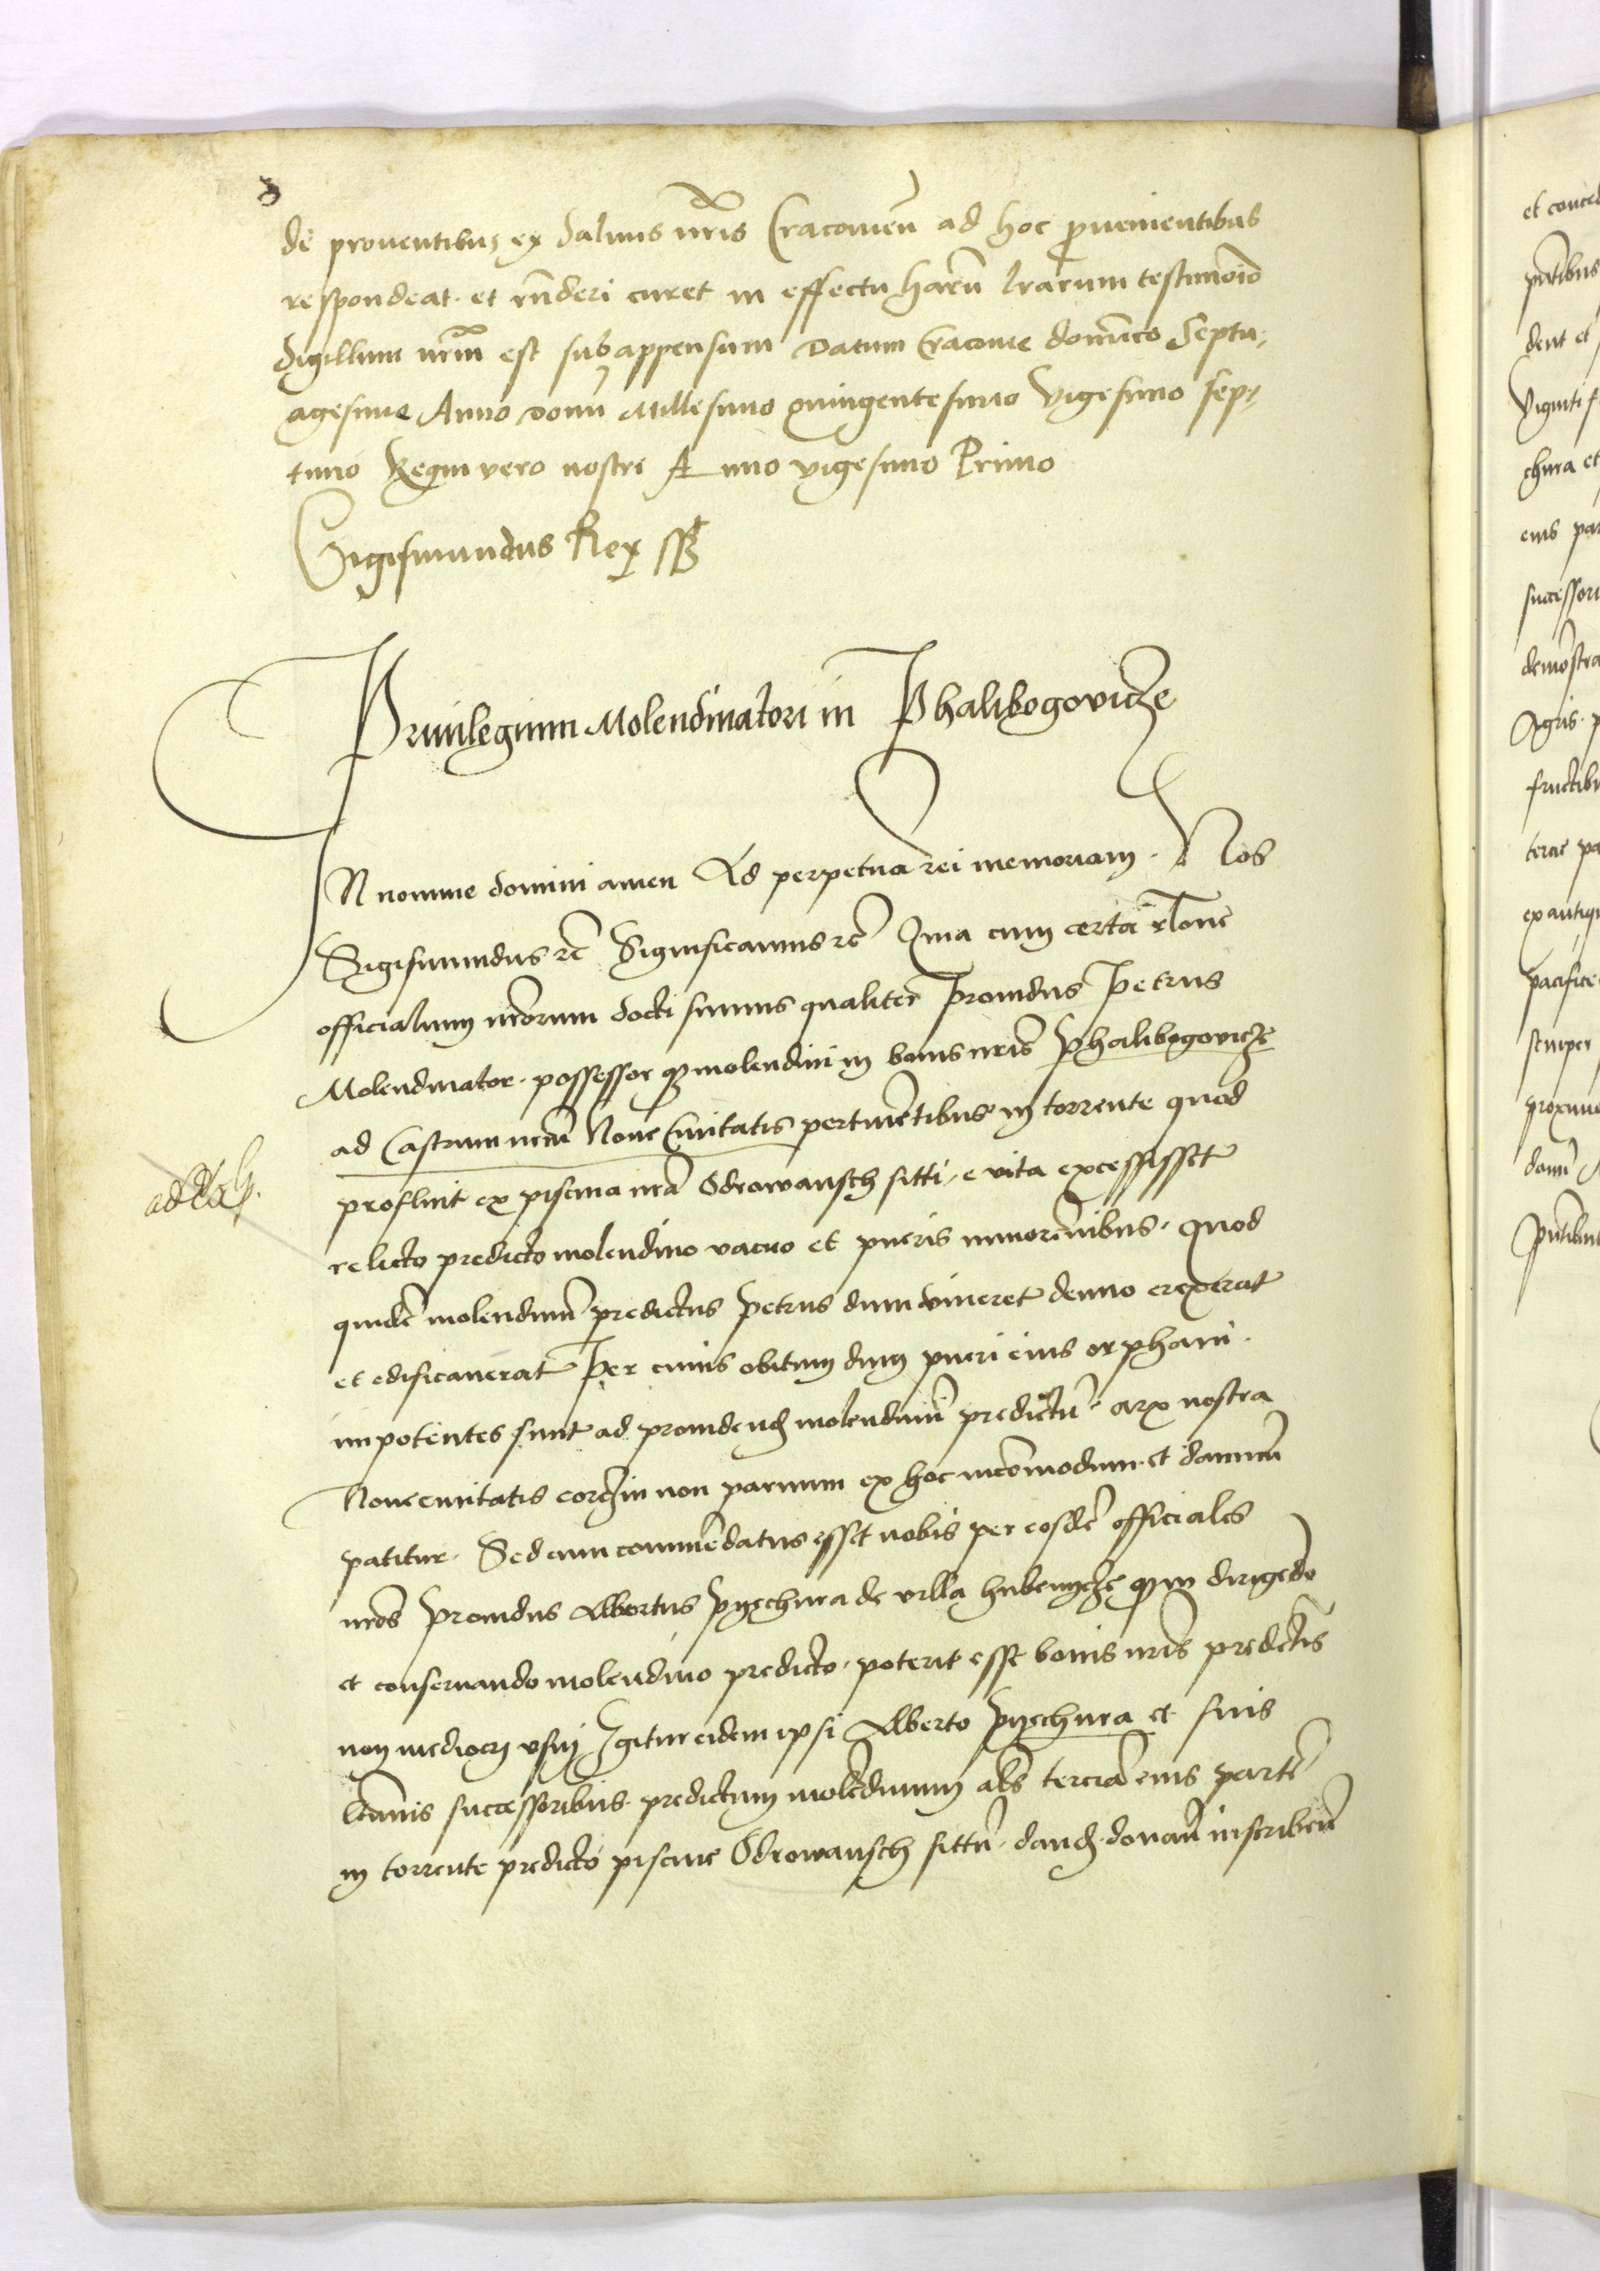 de proventibus ex Salinis nris Cracovien ad hoc provenientibus
respondeat et rnderi curet in effectu harum lrarum testimonio
Sigillum nrm est subappensum Datum Cracovie dominico Septu-
agesime Anno domi Millesimo Quingentesimo Vigesimo sep-
timo Regni vero nostri Anno vigesimo Primo
Sigismundus Rex sst
Privilegium Molendinatori in Phalibogovicze
IN nomine domini amen Ad perpetua rei memoriam. Nos
Sigismundus rc Significamus rc Quia cum certa rlone
officialium nrorum docti sumus qualiter Providus Petrus
Molendinator possessor molendini in bonis nris Phalibogovicze
ad Castrum nrm Nove Civitatis pertinetibus in torrente quod
profluit ex piscina nra Odrowansch sitti, e vita excessisset
relicto predicto molendino vacuo et pueris minorenibus quod
quide molendinu predictus Petrus dum viveret denuo erexerat
et edificaverat Per cuius obitum dum pueri eius orphani
impotentes sunt ad providend molendinu predictu arx nostra
Nove civitatis Corczin non parvum ex hoc incomodum et damnu
patitur. Sed cum comendatus esset nobis per eosde officiales
nros Providus Albertus Pyechura de villa hubenycze qui in dirigedo
et conservando molendino predicto poterit esse bonis nris predictis
non mediocri usui Igitur eidem ipsi Alberto Pyechura et suis
ltimis successoribus predictum moledinum als tercia eius parte
in torrente predicto piscine Odrowansch sittu dand donan inscriben